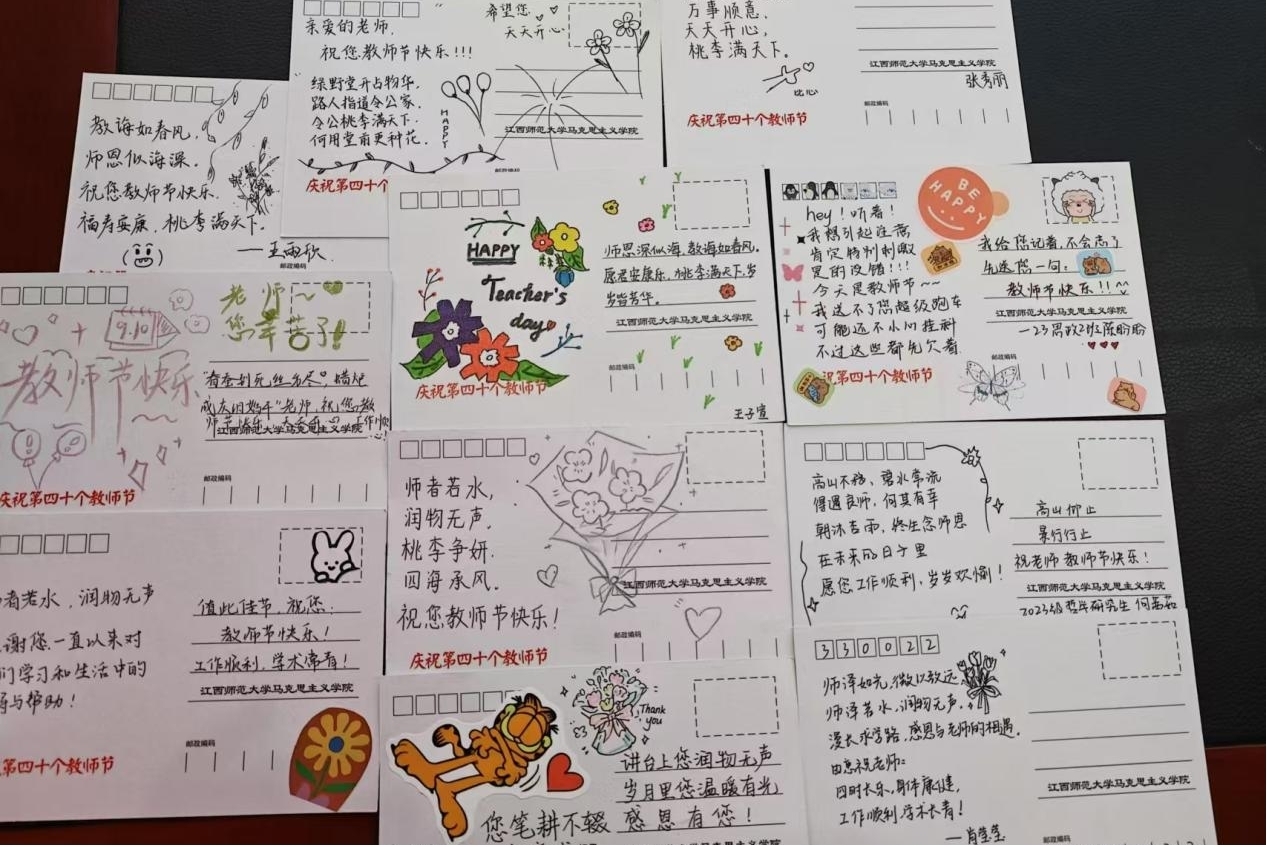 亲爱的老师，
祝您教师节快乐！！！
绿野堂开占物华，
路人指道令公家，
令公桃李满天下，
何用堂前更种花。
HAPPY
希望您
天天开心
江西师范大学马克思主义学院
邮政编码
庆祝第四十个
万事顺意，
天天开心，
桃李满天下。
比心
江西师范大学马克思主义学院
张秀丽
邮政编码
庆祝第四十个教师节
教诲如春风，
师恩似海深。
祝您教师节快乐，
福寿安康，桃李满天下。
——王雨欣
邮政编码
HAPPY
Teacher's
day
师恩深似海，教诲如春风。
愿君安康乐，桃李满天下，岁
岁皆芳华。
江西师范大学马克思主义学院
邮政编码
庆祝第四十个教师节
王子萱
BE
HAPPY
hey！听着！
我想引起注意
肯定特别刺激
是的没错！！！
今天是教师节~~
我送不了您超级跑车
可能还不小心挂科
不过这些都先欠着
我给您记着，不会忘了
先送您一句：
教师节快乐！！
江西师范大学马克思主义学院
邮政编码
祝第四十个教师节
9.10
教师节快乐
老师~
您辛苦了！
江西师范大学马克思主义学院
邮政编码
庆祝第四十个教师节
师者若水，
润物无声，
桃李争妍，
四海承风。
祝您教师节快乐！
江西师范大学马克思主义学院
邮政编码
庆祝第四十个教师节
高山不移，碧水常流
得遇良师，何其有幸
朝沐杏雨，终生念师恩
在未来的日子里
愿您工作顺利，岁岁欢愉！
高山仰止
景行行止
祝老师教师节快乐！
江西师范大学马克思主义学院
2023级哲学研究生
者若水，润物无声
谢您一直以来对
们学习和生活中的
与帮助！
值此佳节，祝您：
教师节快乐！
工作顺利，学术常青！
江西师范大学马克思主义学院
邮政编码
第四十个教师节
Thank
you
讲台上您润物无声
岁月里您温暖有光
您笔耕不辍 感恩有您！
江西师范大学马克思主义学院
330022
师泽如光，微以致远
师泽若水，润物无声。
漫长求学路，感恩与老师的相遇。
由衷祝老师：
四时长乐，身体康健，
工作顺利，学术长青！
——肖莹莹
江西师范大学马克思主义学院
邮政编码